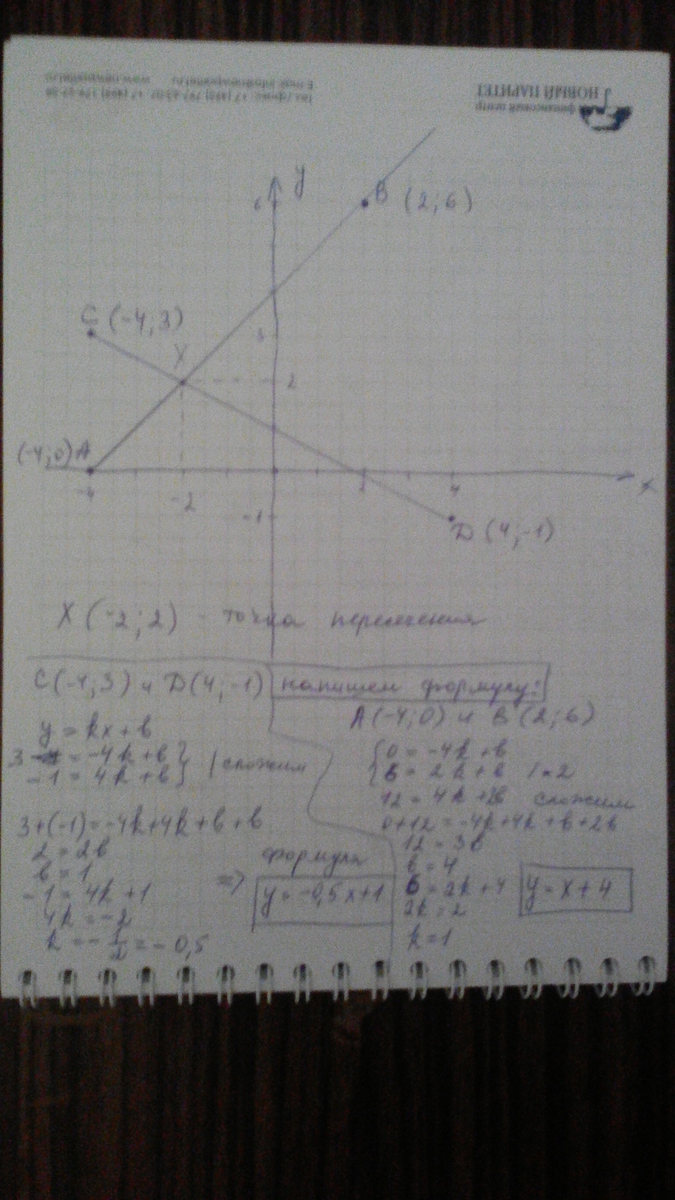 финансовый центр
НОВЫЙ ПАРИТЕТ
y
6
B (2; 6)
C (-4, 3)
3
X
2
(-4; 0) A
-4
-2
2
4
x
-1
D (4, -1)
X (-2; 2) - точка пересечения
C(-4, 3) и D(4; -1) напишем формулу:
y = kx + b
3 = -4k + b
-1 = 4k + b } / сложим
3+(-1)=-4k+4k+b+b
2 = 2b
b = 1
-1 = 4k + 1
4k = -2
k = - 1/2 = - 0,5
=> формула
y = -0,5x+1
A(-4; 0) и B(2; 6)
{ 0 = -4k + b
6 = 2k + b / · 2
12 = 4k + 2b сложим
0+12 = -4k+4k + b + 2b
12 = 3b
b = 4
6 = 2k + 4
2k = 2
k = 1
y = x + 4